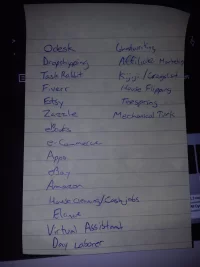 Odesk
Dropshipping
Task Rabbit
Fiverr
Etsy
Zazzle
eBooks
e-Commerce
Apps
eBay
Amazon
House cleaning/Cash jobs
Elance
Virtual Assistant
Day Laborer
Affiliate Marketing
Kijiji/Craigslist
House Flipping
Teespring
Mechanical Turk